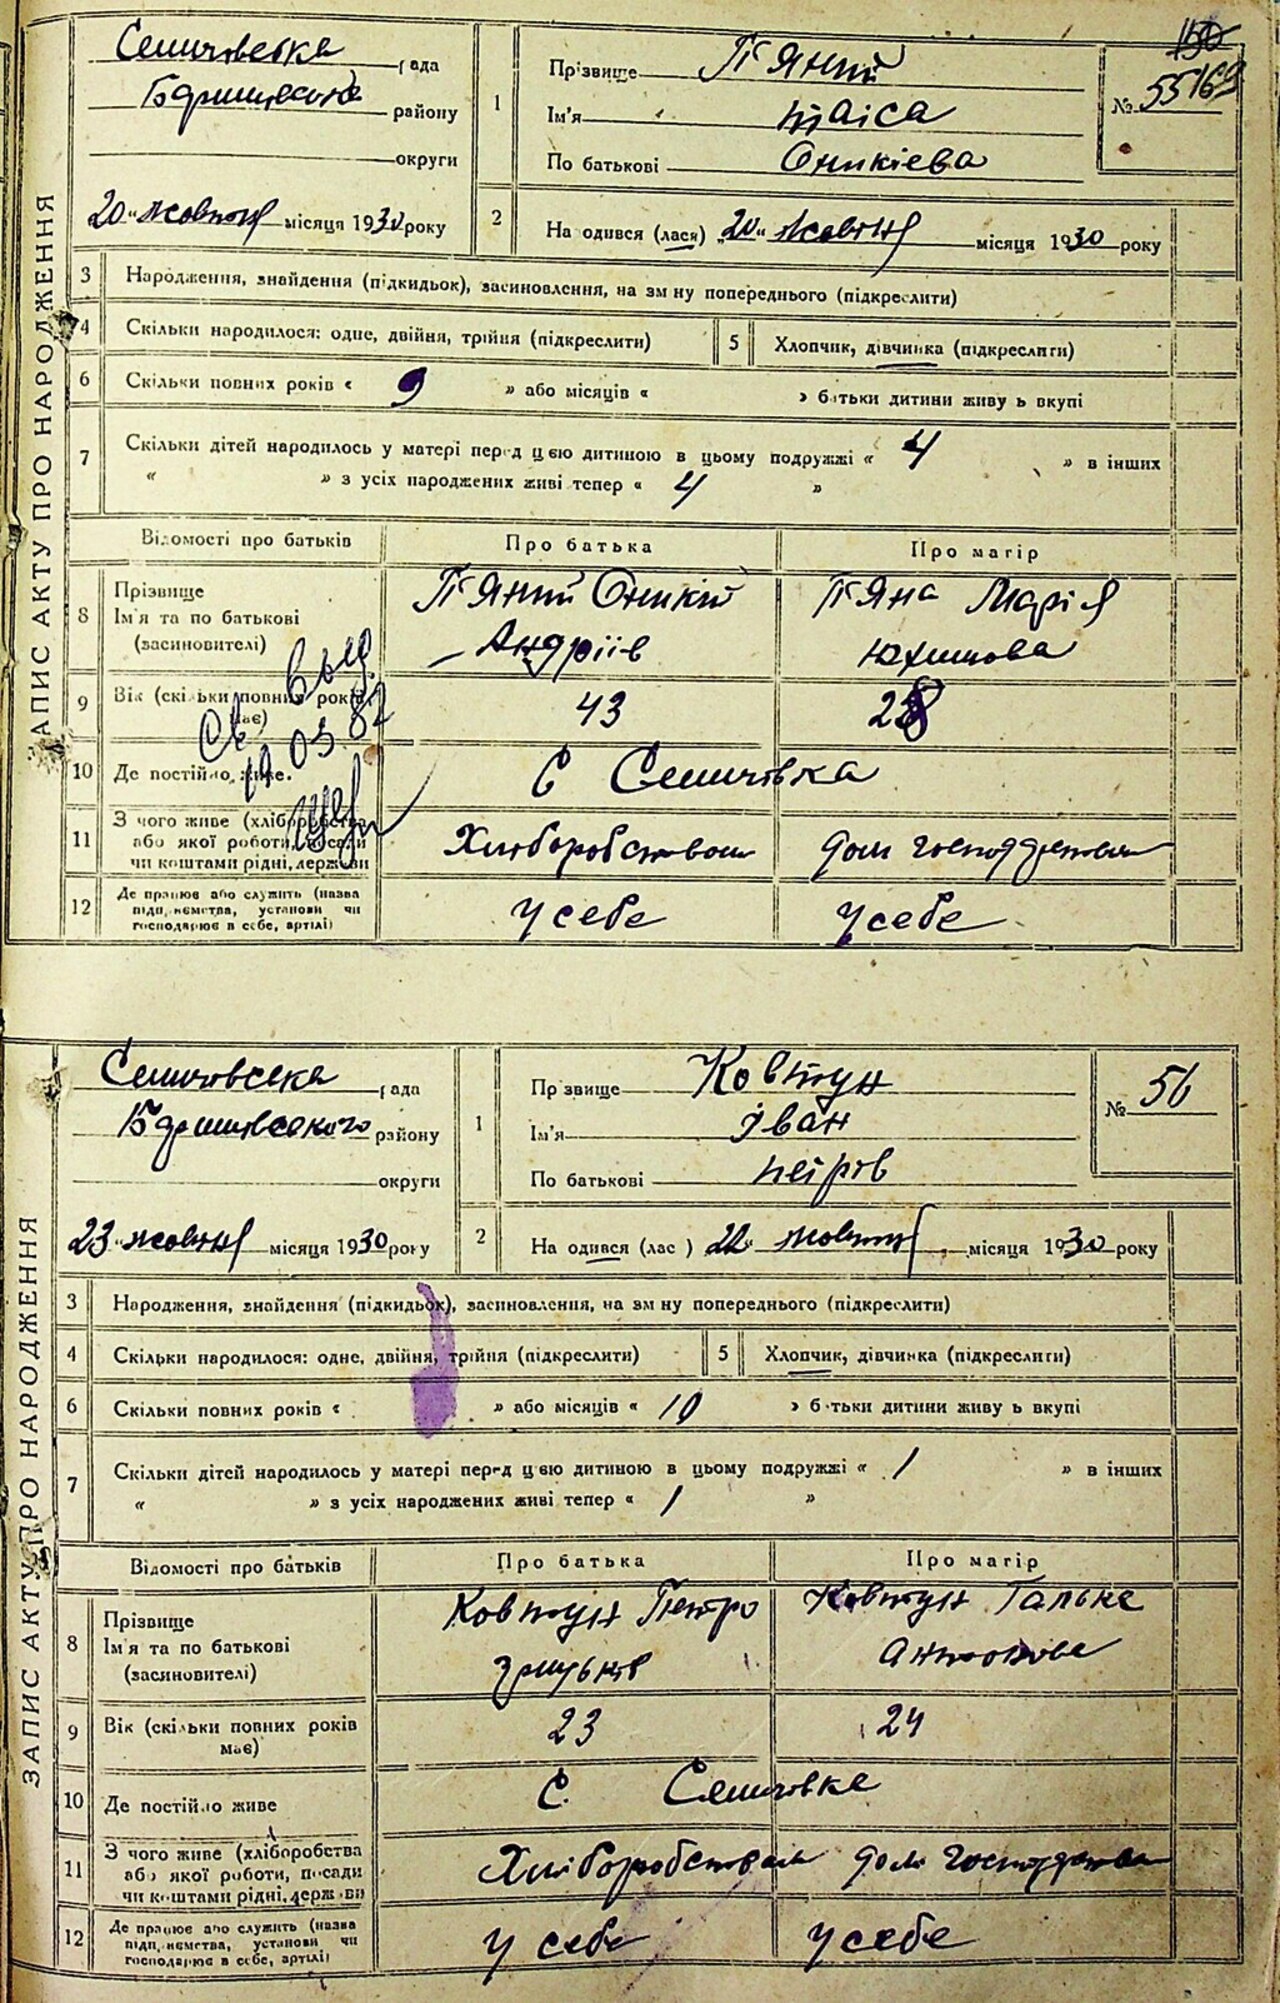 ЗАПИС АКТУ ПРО НАРОДЖЕННЯ
Семиговська рада
району
округи
20 " жовтня місяця 1930 року
1 Прізвище П'яний
Ім'я Таіса
По батькові Оникієва
№ 55 169
2 На одився (лася) „20" жовтня місяця 1930 року
3 Народження, знайдення (підкидьок), засиновлення, на зм ну попереднього (підкреслити)
4 Скільки народилося: одне, двійня, трійня (підкреслити) 5 Хлопчик, дівчинка (підкреслити)
6 Скільки повних років « 9 » або місяців « » батьки дитини живу ь вкупі
7 Скільки дітей народилось у матері перед цією дитиною в цьому подружжі « 4 » в інших
« » з усіх народжених живі тепер « 4 »
Відомості про батьків Про батька Про матір
8 Прізвище Ім'я та по батькові (засиновителі) П'яний Оникій Андріїв П'яна Марія Юхимова
9 Вік (скільки повних років має) 43 28
19 03 82
10 Де постійно живе. С
11 З чого живе (хліборобства або якої роботи, посади чи коштами рідні, держави Хліборобством дом господарством
12 Де працює або служить (назва підприємства, установи чи господарює в себе, артілі) У себе У себе
ЗАПИС АКТУ ПРО НАРОДЖЕННЯ
рада
району
округи
23 " жовтня місяця 1930 року
1 Пр звище Ковтун
Ім'я Іван
По батькові Петрів
№ 56
2 На одився (лас ) 22 " жовтня місяця 1930 року
3 Народження, знайдення (підкидьок), засиновлення, на зм ну попереднього (підкреслити)
4 Скільки народилося: одне, двійня, трійня (підкреслити) 5 Хлопчик, дівчинка (підкреслити)
6 Скільки повних років « » або місяців « 10 » б тьки дитини живу ь вкупі
7 Скільки дітей народилось у матері перед цією дитиною в цьому подружжі « 1 » в інших
« » з усіх народжених живі тепер « 1 »
Відомості про батьків Про батька Про матір
8 Прізвище Ім'я та по батькові (засиновителі) Ковтун Петро Ковтун Галька Антонова
9 Вік (скільки повних років має) 23 24
10 Де постійно живе С.
11 З чого живе (хліборобства або якої роботи, посади чи коштами рідні, держави Хліборобством дом господарством
12 Де працює або служить (назва підприємства, установи чи господарює в себе, артілі) У себе У себе